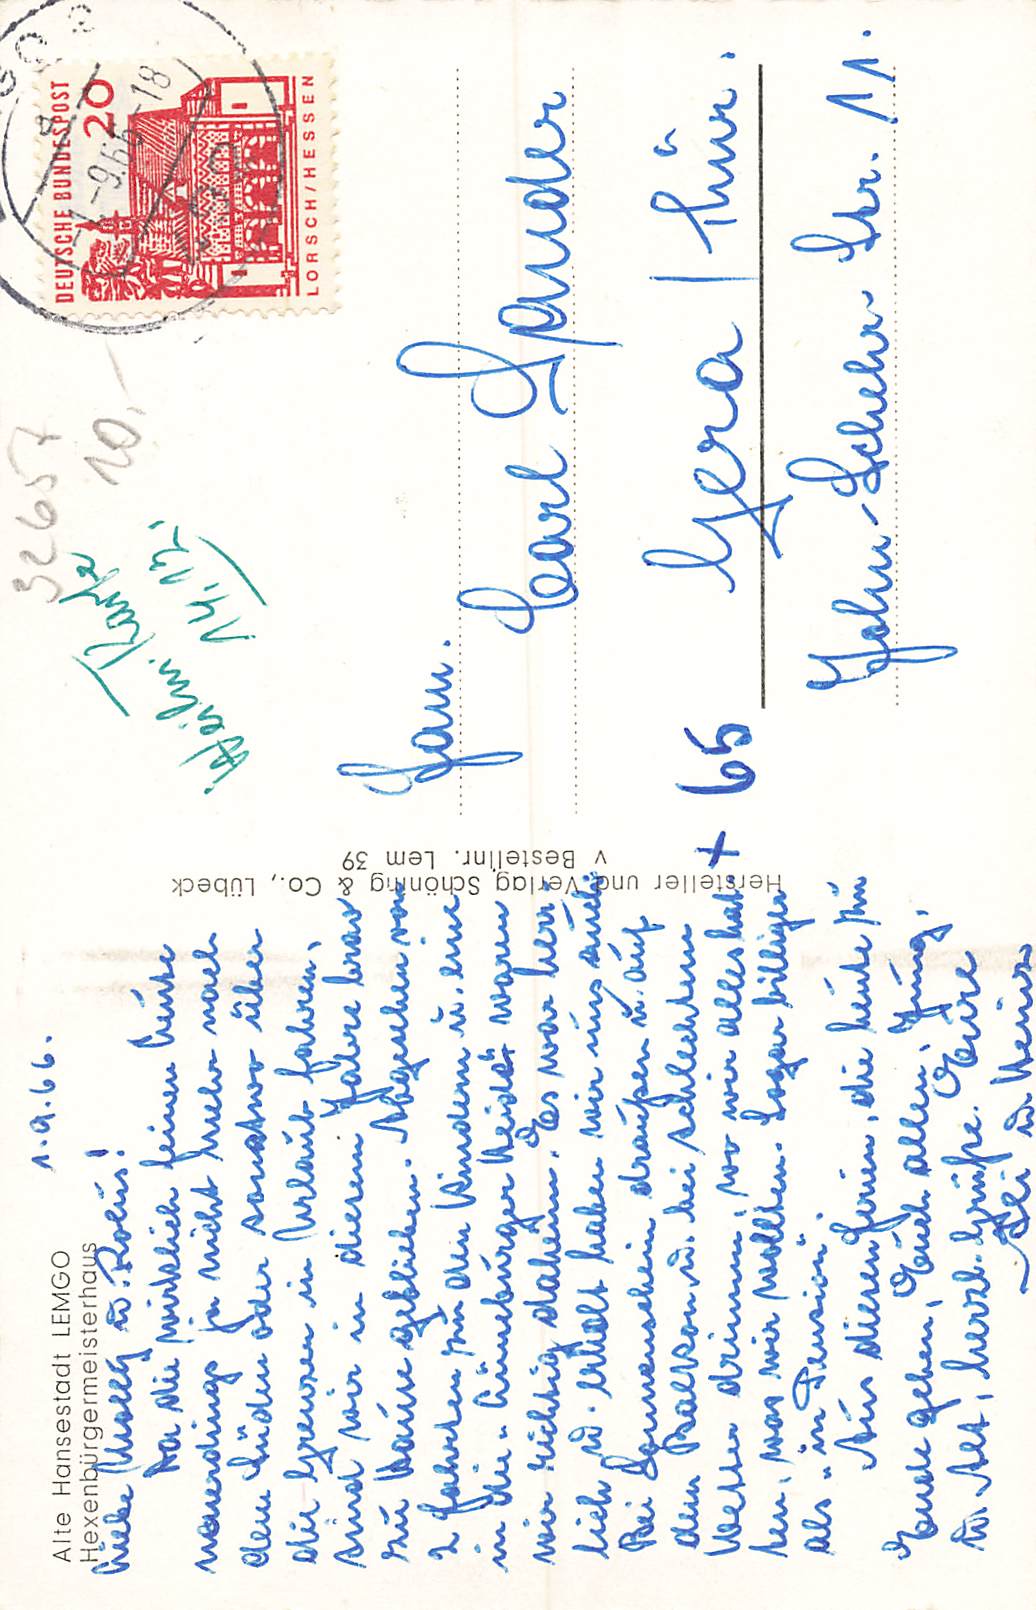 Alte Hansestadt LEMGO
Hexenbürgermeisterhaus
1.9.66.
Liebe Molly u. Rolis!
Da die wirklich feinen Leute
neuerdings ja nicht mehr nach
dem Süden oder sonstwo über
die Grenzen in Urlaub fahren,
sind wir in diesem Jahre brav
zu Hause geblieben. Abgesehen von
2 Fahrten zu den Kindern u. eine
in die Lüneburger Heide waren
wir richtig daheim. Es war herr-
lich u. erholt haben wir uns auch.
Bei Sonnenschein draußen u. auf
dem Balkon u. bei schlechtem
Wetter drinnen, wo wir alles hat-
ten, was wir wollten. Sogar billiger
als "in Pension".
Aus diesen Ferien, die heute zu
Ende gehen, Euch allen, Jung
u. Alt, herzl. Grüße. Eure
Hersteller und Verlag Schöning & Co., Lübeck
v Bestellnr. Lem 39
DEUTSCHE BUNDESPOST
20
LORSCH/HESSEN
-1.-9.66-18
32657
10,-
Karte
14.12.
Fam.
Carl Sander
+ 65 Gera / Thür.
John-Schehr-Str. 11.